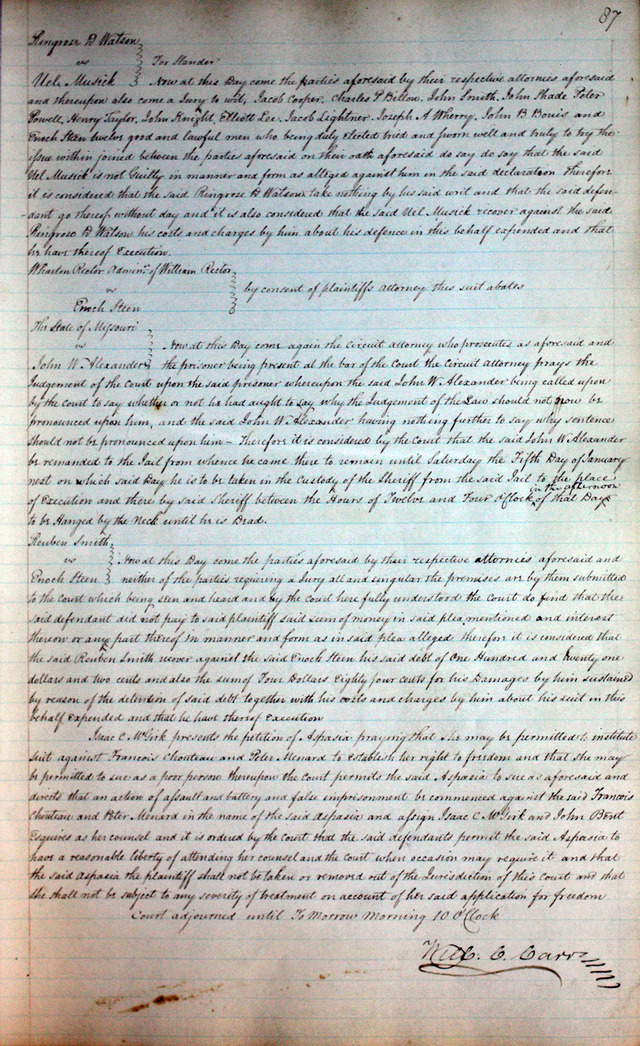 87
Ringrose D Watson
vs For Slander
Uel Musick Now at this Day come the parties aforesaid by their respective attornies aforesaid
and thereupon also came a Jury to wit, Jacob Cooper, Charles P Billow, John Smith, John Shade Peter
Powell, Henry Taylor, John Knight, Elliott Lee, Jacob Lightner, Joseph A Wherry, John B Bouis and
Enoch Steen twelve good and lawful men who being duly elected tried and sworn well and truly to try the
issue within joined between the parties aforesaid on their oath aforesaid do say do say that the said
Uel Musick is not Guilty in manner and form as alleged against him in the said declaration Therefore
it is considered that the said Ringrose D Watson take nothing by his said writ and that the said defen-
dant go thereof without day and it is also considered that the said Uel Musick recover against the said
Ringrose D Watson his costs and charges by him about his defence in this behalf expended and that
he have thereof Execution.
Wharton Rector Adminr. of William Rector
vs by consent of plaintiffs attorney this suit abates
Enoch Steen
The State of Missouri
vs Now at this Day come again the Circuit attorney who prosecutes as aforesaid and
John W. Alexander the prisoner being present at the bar of the Court the Circuit attorney prays the
Judgement of the Court upon the said prisoner whereupon the said John W. Alexander being called upon
by the Court to say whether or not he had aught to say why the Judgement of the Law should not now be
pronounced upon him, and the said John W. Alexander having nothing further to say why sentence
should not be pronounced upon him – Therefore it is considered by the Court that the said John W. Alexander
be remanded to the Jail from whence he came there to remain until Saturday the Fifth Day of January
next on which said Day he is to be taken in the Custody of the Sheriff from the said Jail to the place
in the afternoon
of Execution and there by said Sheriff between the Hours of Twelve and Four OClock of that Day
to be Hanged by the Neck until he is Dead.
Reuben Smith
vs Now at this Day come the parties aforesaid by their respective attornies aforesaid and
Enoch Steen neither of the parties requiring a Jury all and singular the premises are by them submitted
to the Court which being seen and heard and by the Court here fully understood the Court do find that the
said defendant did not pay to said plaintiff said sum of money in said plea mentioned and interest
thereon or any part thereof in manner and form as in said plea alleged therefore it is considered that
the said Reuben Smith recover against the said Enoch Steen his said debt of One Hundred and twenty one
dollars and two cents and also the sum of Four Dollars Eighty four cents for his Damages by him sustained
by reason of the detention of said debt together with his costs and charges by him about his suit in this
behalf Expended and that he have thereof Execution
Isaac C McGirk presents the petition of Aspasia praying that she may be permitted to institute
suit against Francois Chouteau and Peter Menard to Establish her right to freedom and that she may
be permitted to sue as a poor person thereupon the Court permits the said Aspasia to sue as aforesaid and
directs that an action of assault and battery and false imprisonment be commenced against the said Francois
Chouteau and Peter Menard in the name of the said Aspasia and assign Isaac C McGirk and John Bent
Esquires as her counsel and it is ordered by the court that the said defendants permit the said Aspasia to
have a reasonable liberty of attending her counsel and the court when occasion may require it and that
the said Aspasia the plaintiff shall not be taken or removed out of the Jurisdiction of this Court and that
she shall not be subject to any severity of treatment on account of her said application for freedom
Court adjourned until To Morrow Morning 10 OClock
Will. C. Carr